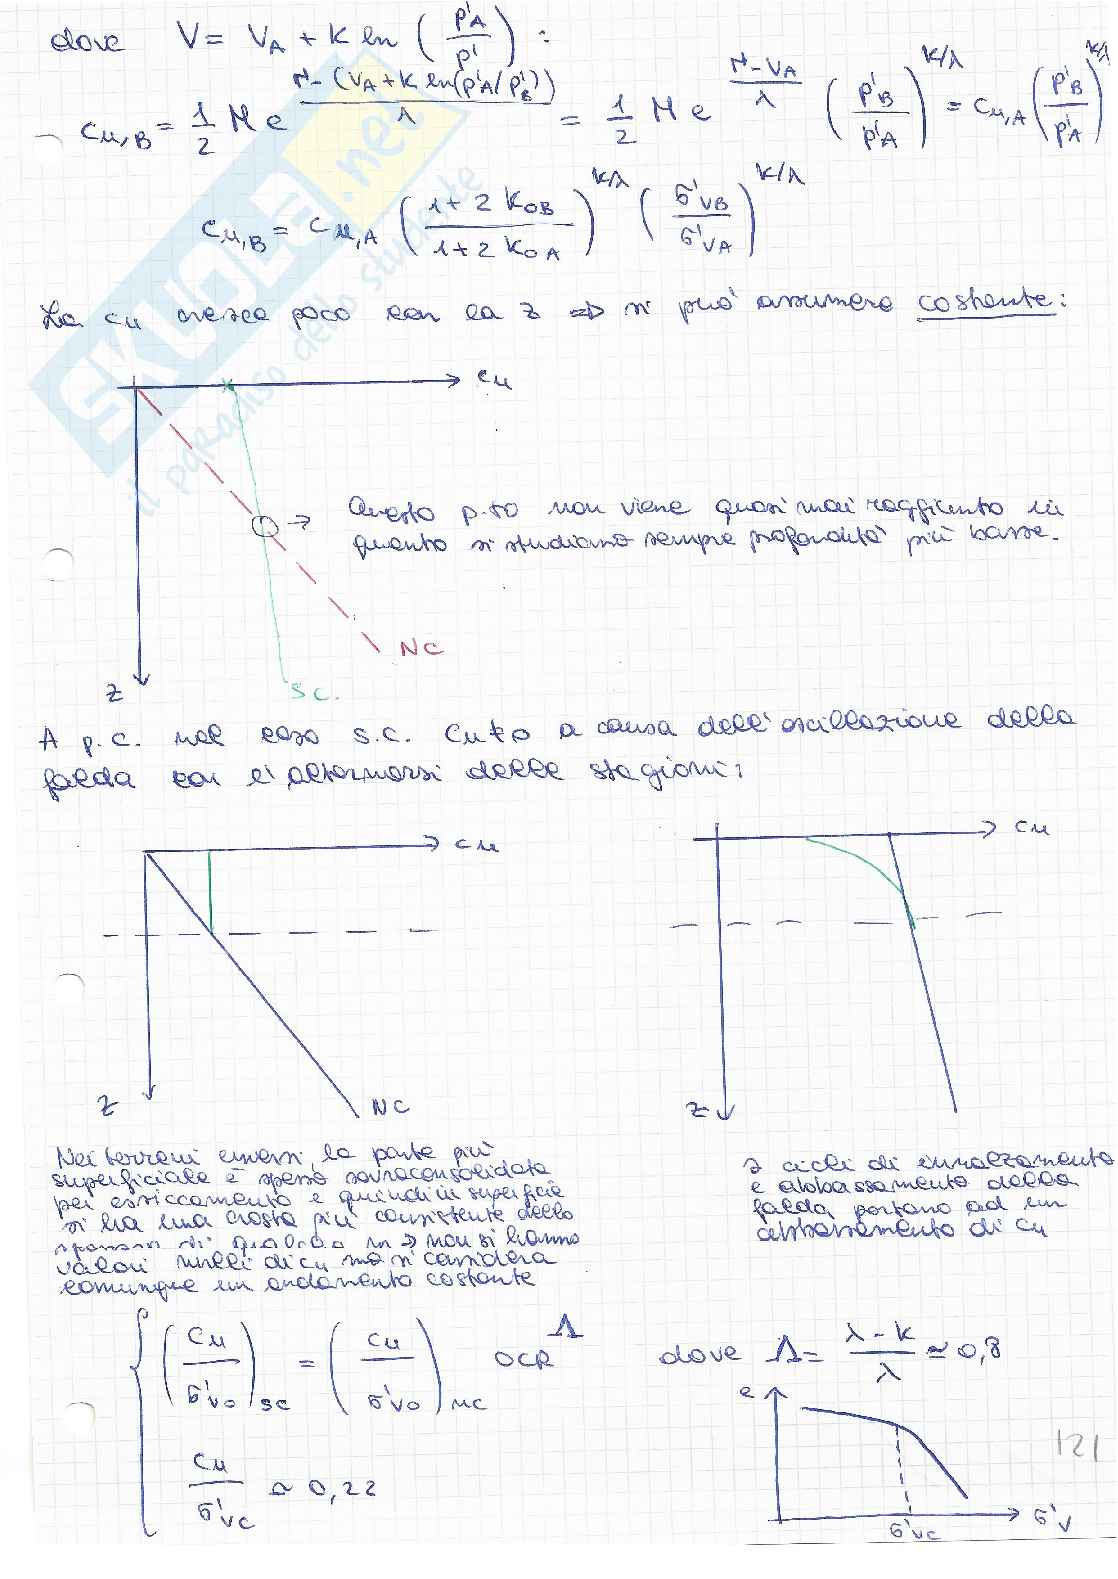 dove V = V_A + K ln (p'_A / p') :
c_{u,B} = 1/2 M e^{(N - (V_A + K ln(p'_A / p'_B))) / λ} = 1/2 M e^{(N - V_A) / λ} (p'_B / p'_A)^{K/λ} = c_{u,A} (p'_B / p'_A)^{K/λ}
c_{u,B} = c_{u,A} ((1 + 2 K_{0B}) / (1 + 2 K_{0A}))^{K/λ} (σ'_{VB} / σ'_{VA})^{K/λ}
La cu cresce poco con la z ⇒ si può assumere costante:
cu
Questo p.to non viene quasi mai raggiunto in
quanto si studiano sempre profondità più basse.
NC
z
S.C.
A p.c. nel caso s.c. cu≠0 a causa dell'oscillazione della
falda con l'alternarsi delle stagioni:
cu
cu
z
NC
z
Nei terreni emersi la parte più
superficiale è spesso sovraconsolidata
per essiccamento e quindi in superficie
si ha una crosta più consistente dello
spessore di qualche m ⇒ non si hanno
valori nulli di cu ma si considera
comunque un andamento costante
I cicli di innalzamento
e abbassamento della
falda portano ad un
abbassamento di cu
(cu / σ'_{V0})_{SC} = (cu / σ'_{V0})_{NC} OCR^Λ dove Λ = (λ - K) / λ ≃ 0,8
e
cu / σ'_{VC} ≃ 0,22
σ'_{VC}
σ'_V
121
SKUOLA.net
il paradiso dello studente